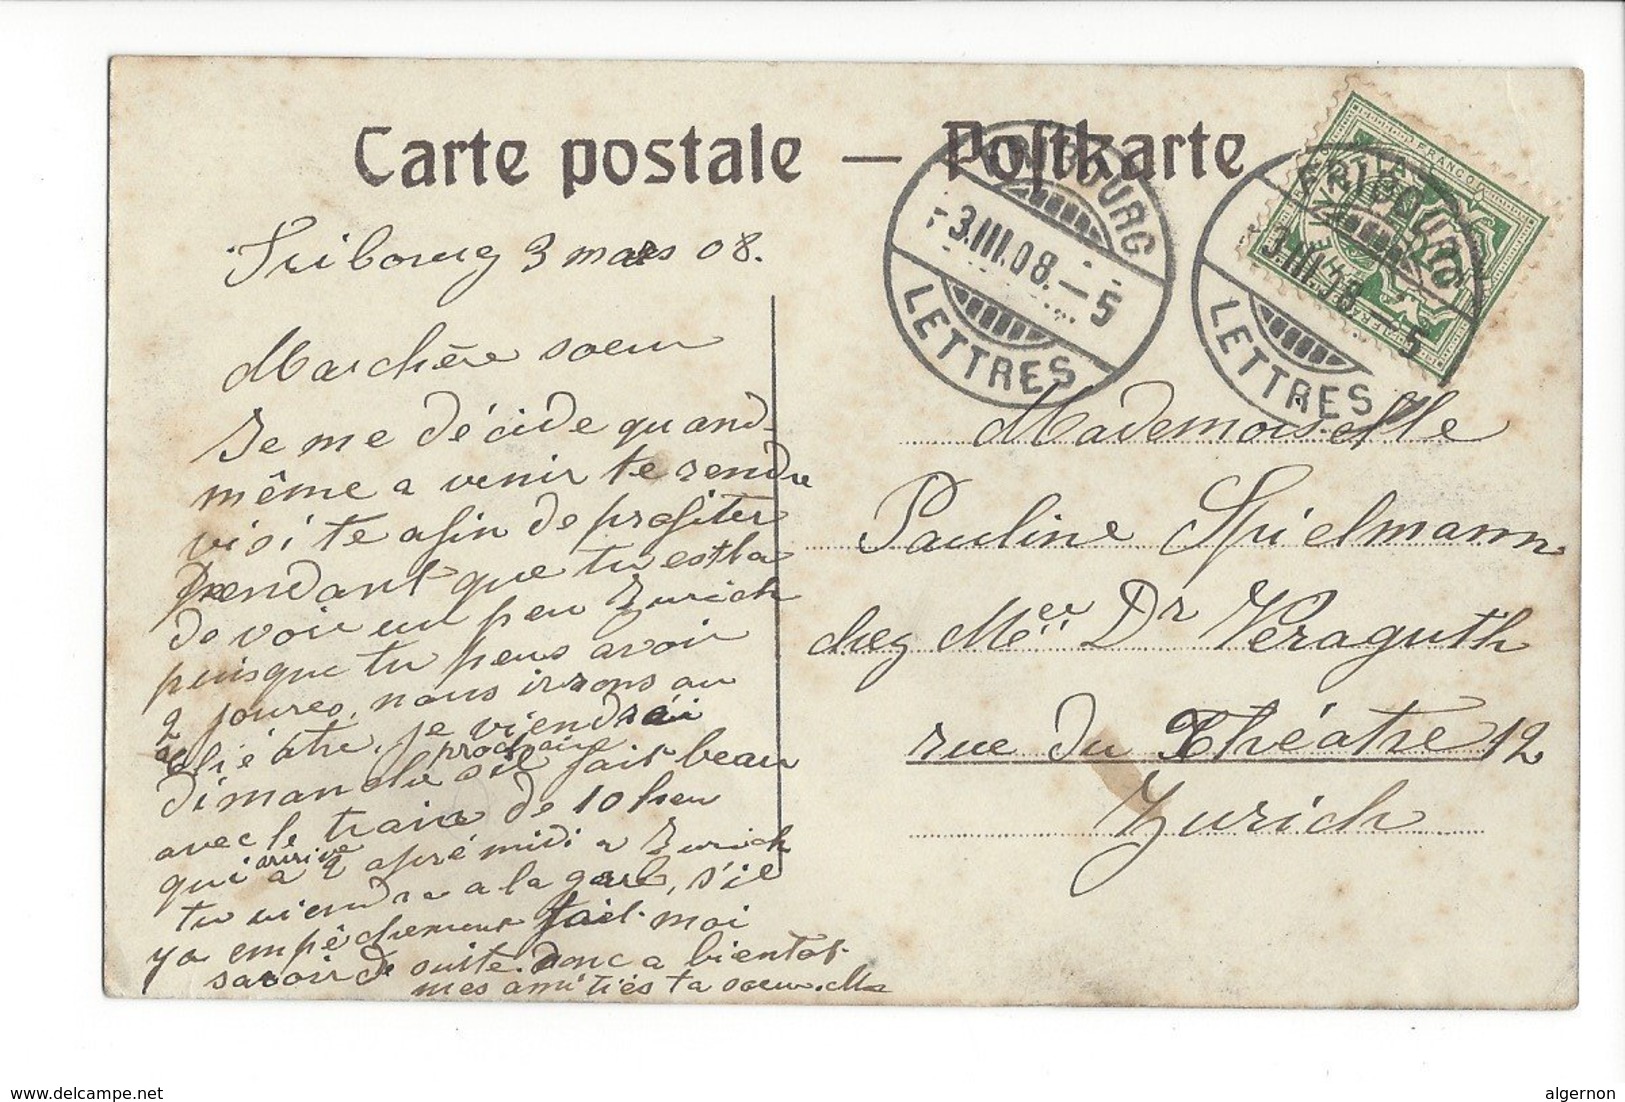 Carte postale — Postkarte
FRIBOURG
3.III.08.—5
LETTRES
FRIBOURG
3.III.08.—5
LETTRES
FRANCO
Fribourg 3 mars 08.
Ma chère soeur
Je me décide quand-
même a venir te rendre
visite afin de profiter
pendant que tu est la
de voir un peu Zurich
puisque tu peus avoir
2 joures, nous irrons au
théâtre. je viendrai
dimanche prochaine s'il fait beau
avec le train de 10 heu
qui arrive a 2 aprémidi a Zurich
tu viendra a la gare, s'il
ya empêchement fait-moi
savoir de suite. donc a bientot.
mes amitiés ta soeur. M
Mademoiselle
Pauline Spielmann
chez Mer Dr Veraguth
rue du Théatre 12
Zurich
www.delcampe.net
algernon